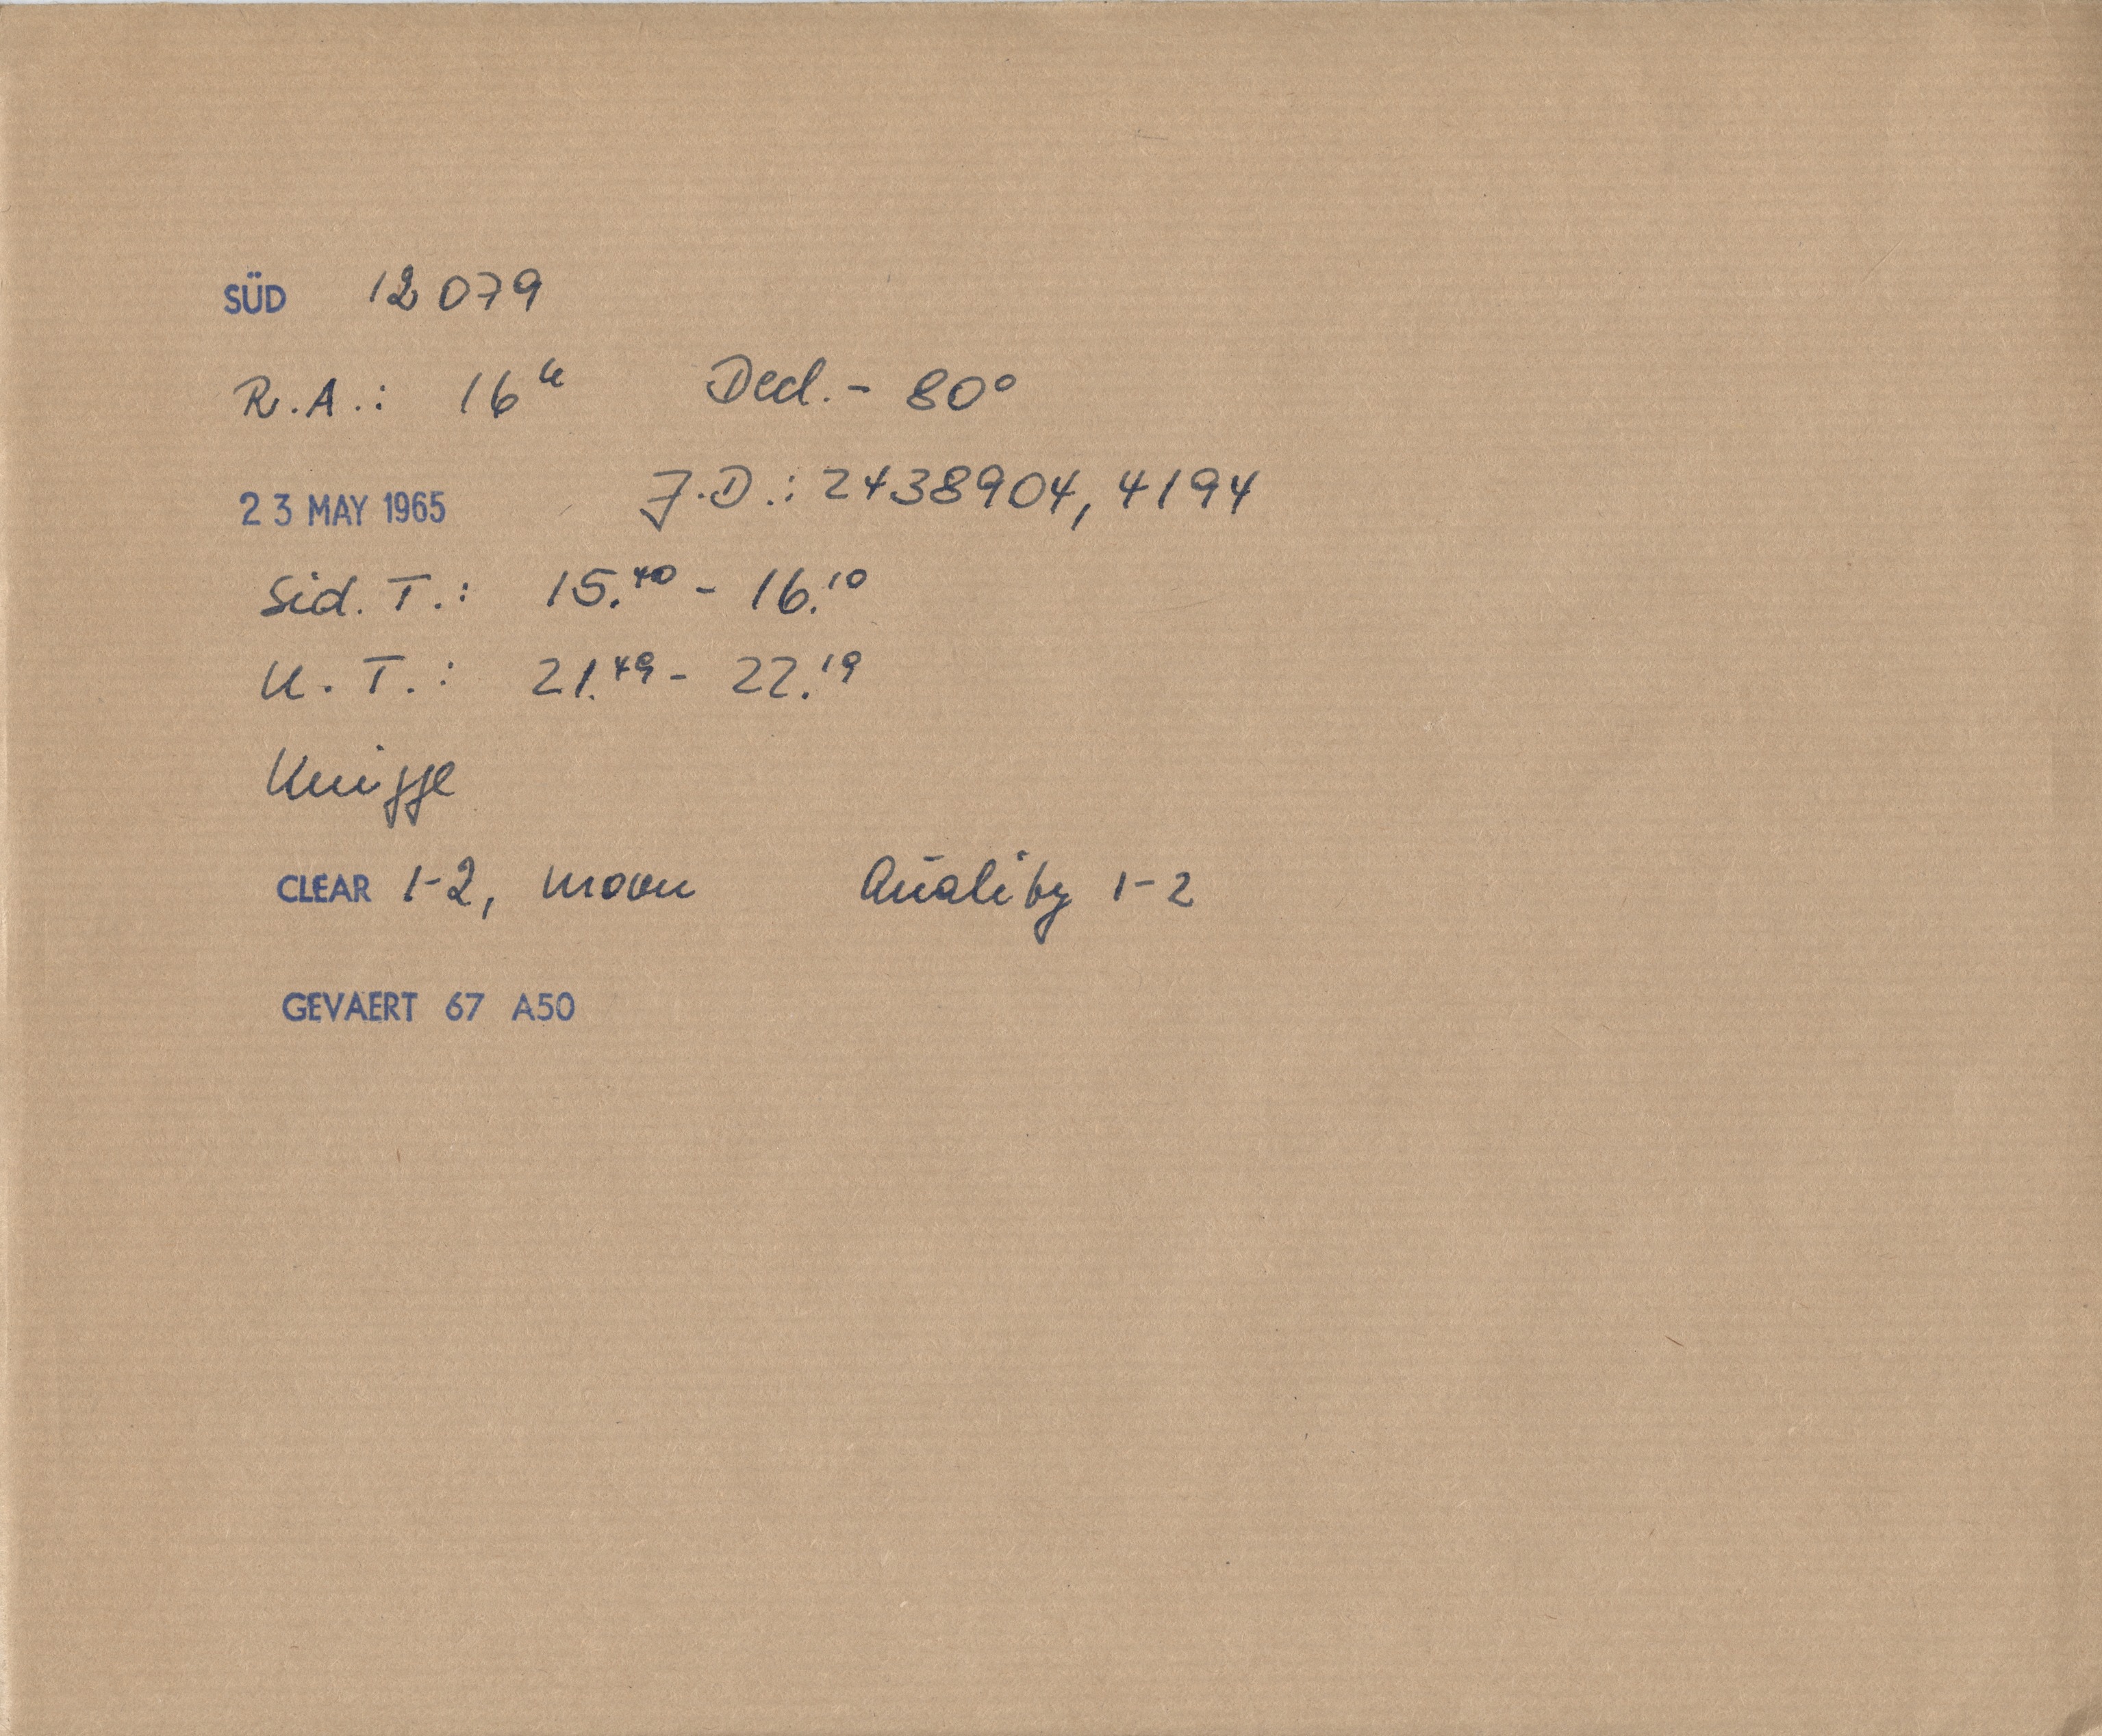 SÜD 12079
R.A.: 16ʰ Decl. - 80°
23 MAY 1965 J.D.: 2438904,4194
Sid. T.: 15.⁴⁰ - 16.¹⁰
U. T.: 21.⁴⁹ - 22.¹⁹
Knigge
CLEAR 1-2, moon Quality 1-2
GEVAERT 67 A50